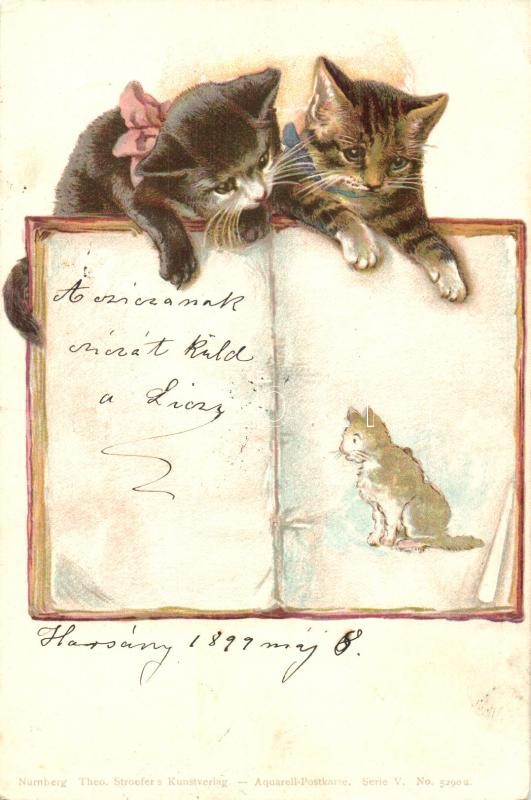 A cziczának
cziczát küld
a Liczy
Harsány 1899 máj 8.
Nürnberg Theo. Stroefer's Kunstverlag. — Aquarell-Postkarte. Serie V. No. 5290 u.